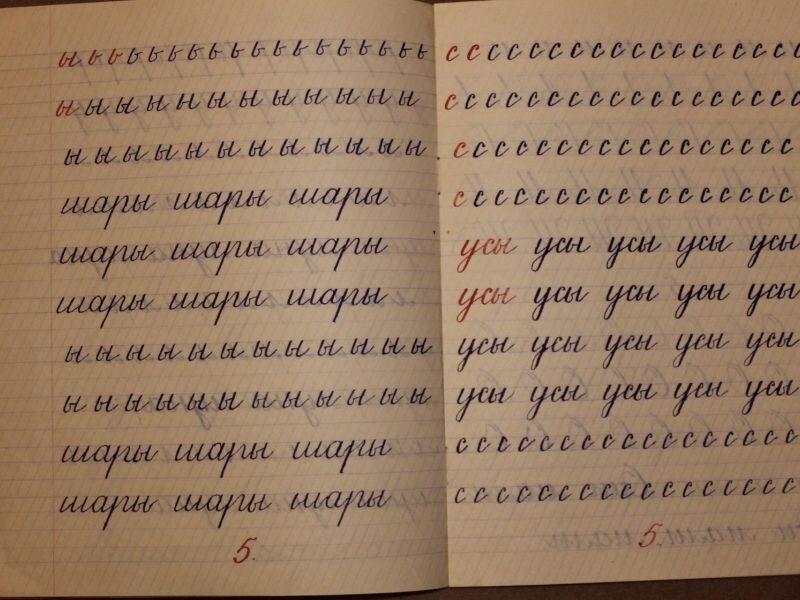 ы ь ь ь ь ь ь ь ь ь ь ь ь ь ь ь ь ь
ы ы ы ы ы ы ы ы ы ы ы ы
ы ы ы ы ы ы ы ы ы ы ы ы
шары шары шары
шары шары шары
шары шары шары
ы ы ы ы ы ы ы ы ы ы ы ы
ы ы ы ы ы ы ы ы ы ы ы ы
шары шары шары
шары шары шары
5.
с с с с с с с с с с с с с с с с с с
с с с с с с с с с с с с с с с с с с
с с с с с с с с с с с с с с с с с
с с с с с с с с с с с с с с с с с
усы усы усы усы усы
усы усы усы усы усы
усы усы усы усы усы
усы усы усы усы усы
с с с с с с с с с с с с с с с с с
с с с с с с с с с с с с с с с с с
5.